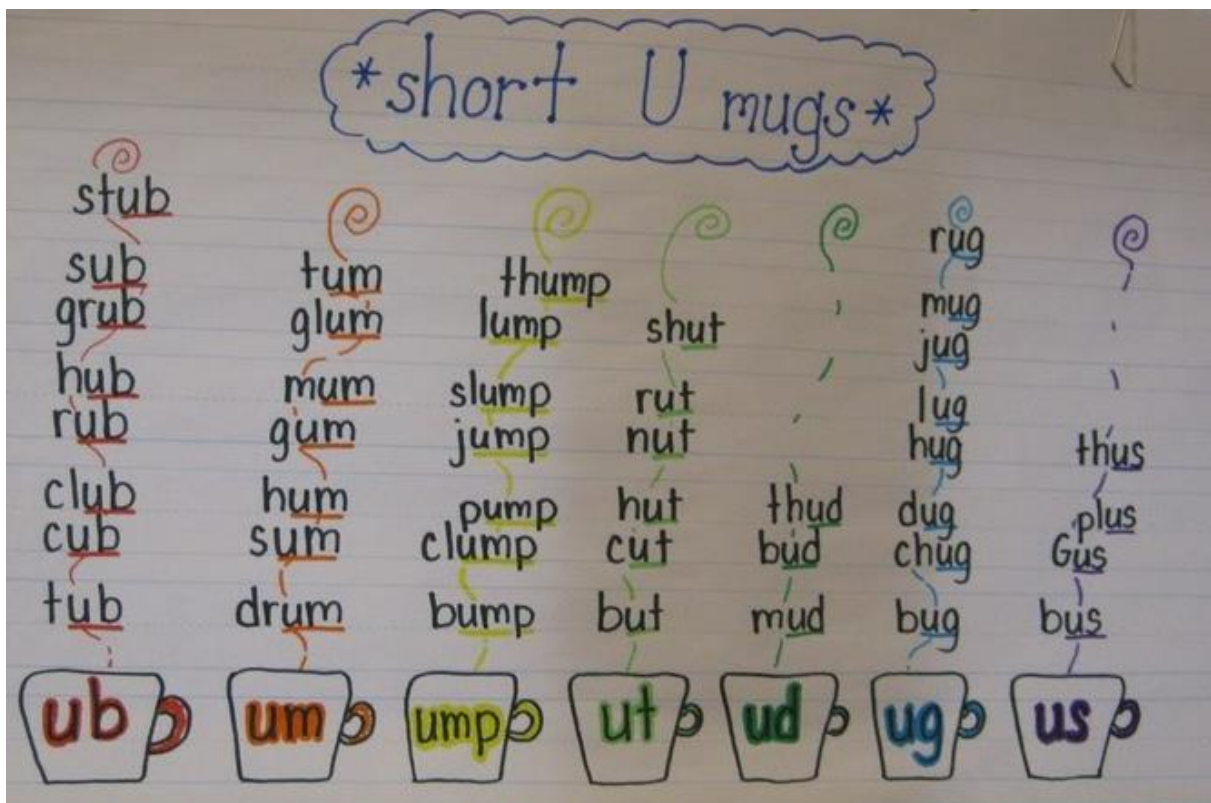 *short U mugs*
stub
sub
grub
hub
rub
club
cub
tub
ub
tum
glum
mum
gum
hum
sum
drum
um
thump
lump
slump
jump
pump
clump
bump
ump
shut
rut
nut
hut
cut
but
ut
thud
bud
mud
ud
rug
mug
jug
lug
hug
dug
chug
bug
ug
thus
plus
Gus
bus
us